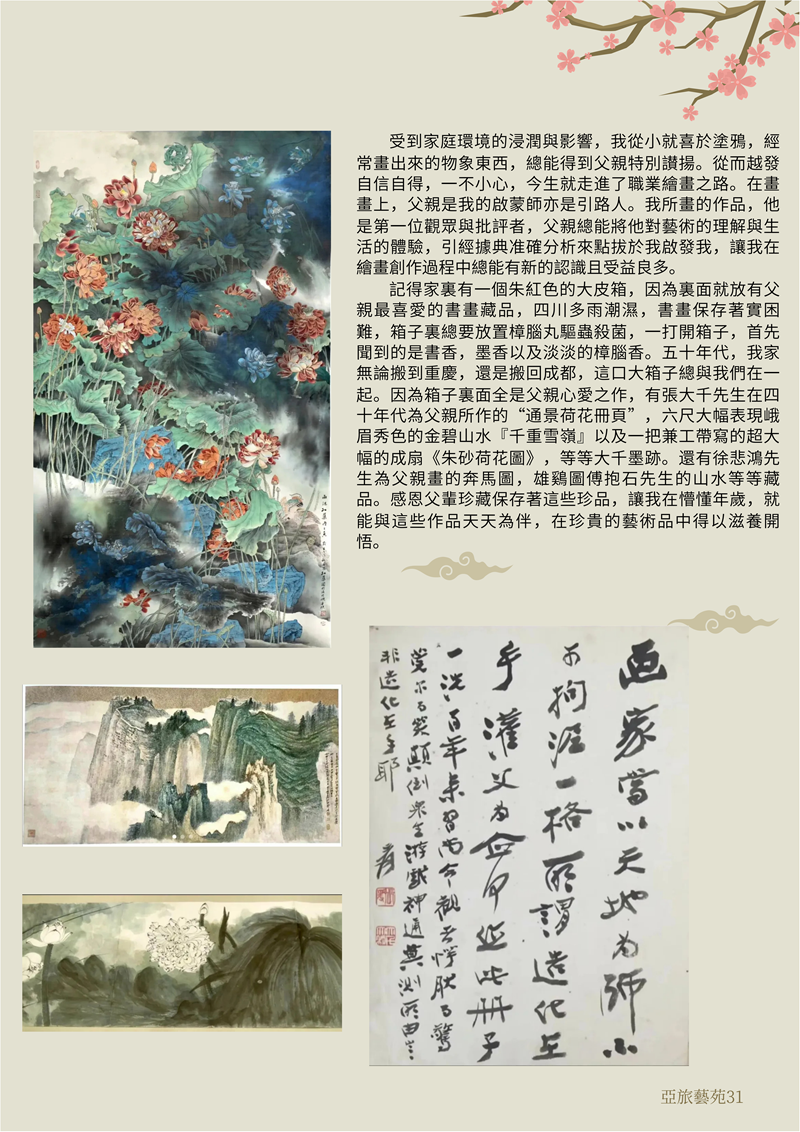 受到家庭環境的浸潤與影響，我從小就喜於塗鴉，經
常畫出來的物象東西，總能得到父親特別讚揚。從而越發
自信自得，一不小心，今生就走進了職業繪畫之路。在畫
畫上，父親是我的啟蒙師亦是引路人。我所畫的作品，他
是第一位觀眾與批評者，父親總能將他對藝術的理解與生
活的體驗，引經據典准確分析來點拔於我啟發我，讓我在
繪畫創作過程中總能有新的認識且受益良多。
記得家裏有一個朱紅色的大皮箱，因為裏面就放有父
親最喜愛的書畫藏品，四川多雨潮濕，書畫保存著實困
難，箱子裏總要放置樟腦丸驅蟲殺菌，一打開箱子，首先
聞到的是書香，墨香以及淡淡的樟腦香。五十年代，我家
無論搬到重慶，還是搬回成都，這口大箱子總與我們在一
起。因為箱子裏面全是父親心愛之作，有張大千先生在四
十年代為父親所作的“通景荷花冊頁”，六尺大幅表現峨
眉秀色的金碧山水『千重雪嶺』以及一把兼工帶寫的超大
幅的成扇《朱砂荷花圖》，等等大千墨跡。還有徐悲鴻先
生為父親畫的奔馬圖，雄鷄圖傅抱石先生的山水等等藏
品。感恩父輩珍藏保存著這些珍品，讓我在懵懂年歲，就
能與這些作品天天為伴，在珍貴的藝術品中得以滋養開
悟。
画家當以天地為師不
可拘泥一格所謂造化在
手
一洗百年
非造化在手耶
亞旅藝苑31